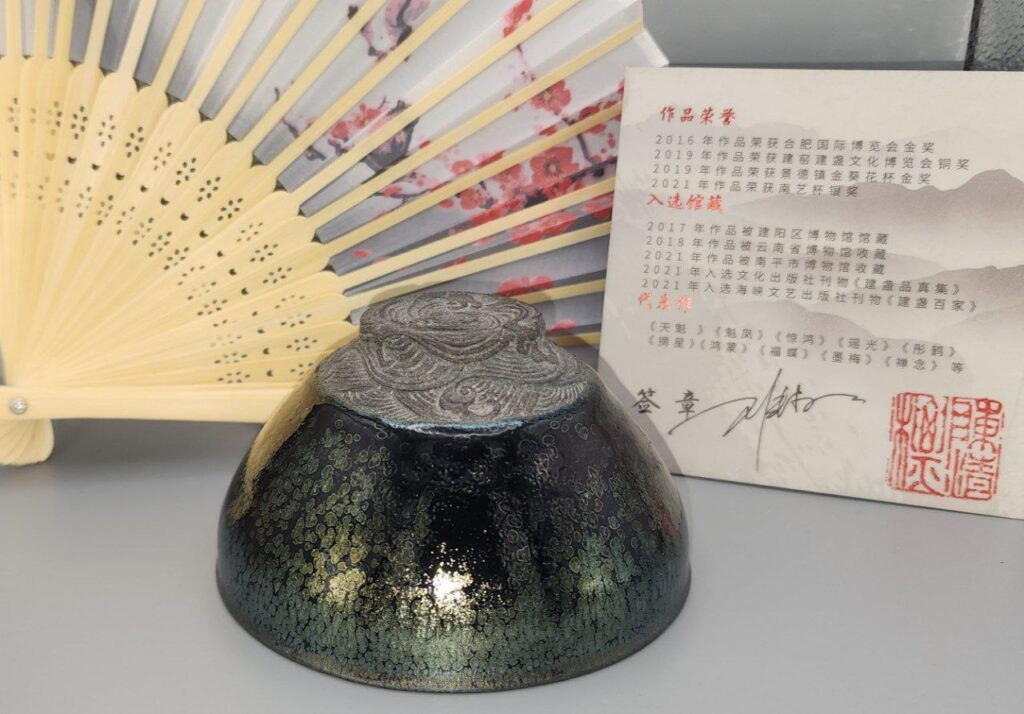 作品荣誉
2016年作品荣获合肥国际博览会金奖
2019年作品荣获建窑建盏文化博览会铜奖
2019年作品荣获景德镇金葵花杯金奖
2021年作品荣获南艺杯银奖
入选馆藏
2017年作品被建阳区博物馆馆藏
2018年作品被云南省博物馆收藏
2021年作品被南平市博物馆收藏
2021年入选文化出版社刊物《建盏品真集》
2021年入选海峡文艺出版社刊物《建盏百家》
代表作
《天魁》《魁凤》《惊鸿》《瑶光》《彤鹤》
《摘星》《鸿蒙》《福蝶》《墨梅》《禅念》等
签章